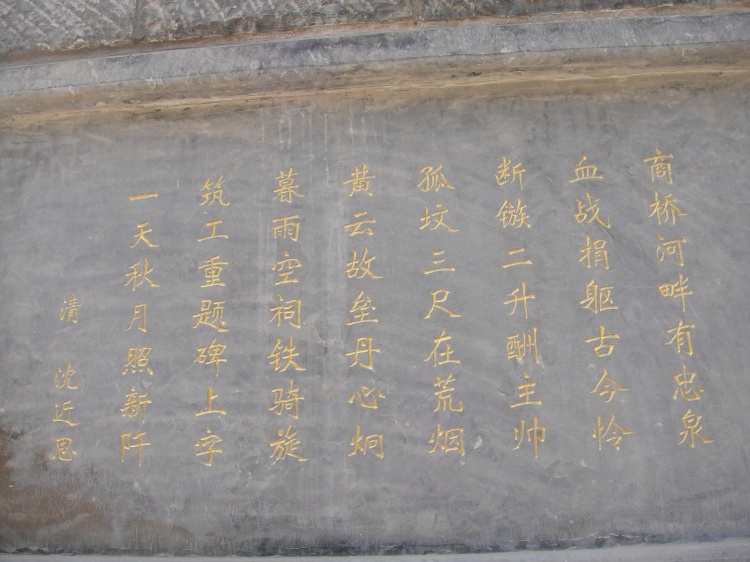 商桥河畔有忠泉
血战捐躯古今怜
断镞二升酬主帅
孤坟三尺在荒烟
黄云故垒丹心炯
暮雨空祠铁骑旋
筑工重题碑上字
一天秋月照新阡
清 沈近思